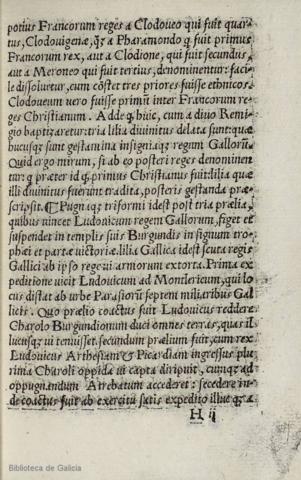 potius Francorum reges a Clodoueo qui fuit quar-
tus, Clodouigenæ, q̃z a Pharamondo q̃ fuit primus
Francorum rex, aut a Clodione, qui fuit secundus,
aut a Meroneo qui fuit tertius, denominentur: faci-
le dissoluetur, cum cõstet tres priores fuisse ethnicos.
Clodoueum vero fuisse primũ inter Francorum re-
ges Christianum. Adde q̃ huic, cum a diuo Remi-
gio baptizaretur: tria lilia diuinitus delata sunt: quæ
hucusq; sunt gestamina insigniaq; regum Gallorũ.
Quid ergo mirum, si ab eo posteri reges denominen
tur: q̃ præter id q̃, primus Christianus fuit: lilia quæ
illi diuinitus fuerunt tradita, posteris gestanda præ-
scripsit. ¶ Pugnaq; triformi idest post tria prælia,
quibus vincet Ludouicum regem Gallorum, figet et
suspendet in templis suis Burgundis in signum tro-
phæi et partæ victoriæ. lilia Gallica idest scuta regis
Gallici ab ipso rege vi armorum extorta. Prima ex-
peditione vicit Ludouicum ad Montlericum, qui lo
cus distat ab urbe Parasiorũ septem miliaribus Gal
licis. Quo prælio coactus fuit Ludouicus reddere
Charolo Burgundionum duci omnes terras, quas il
lucusq; vi tenuisset. secundum prælium fuit, cum rex
Ludouicus Arthesiam & Picardiam ingressus plu
rima Charoli oppida vi capta diripuit, cumq; ad
oppugnandum Atrebatum accederet: secedere in-
de coactus fuit ab exercitu satis expedito illuc q̃ a
H ij
Biblioteca de Galicia